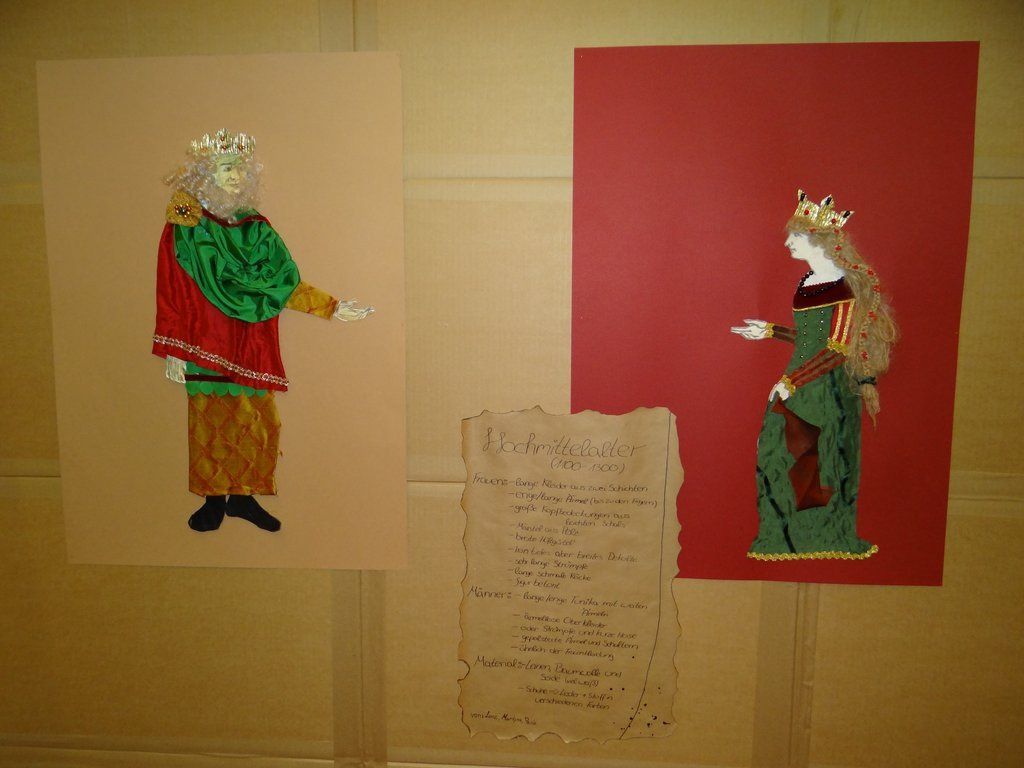 Hochmittelalter
(1100-1300)
Frauen: - lange Kleider aus zwei Schichten
- enge/lange Ärmel (bis zu den Fingern)
- große Kopfbedeckungen aus
leichten Schals
- Mäntel aus Pelz
- breite Hüftgürtel
- kein tiefes aber breites Dekolte
- sehr lange Strümpfe
- lange schmale Röcke
- figur betont
Männer: - lange/enge Tunika mit weiten
Ärmeln
- ärmellose Oberkleider
- oder Strümpfe und kurze Hose
- gepolsterte Ärmel und Schultern
- ähnlich der Frauenkleidung
Material: - Leinen, Baumwolle und
Seide
- Schuhe → Leder + Stoff in
verschiedenen Farben
von: